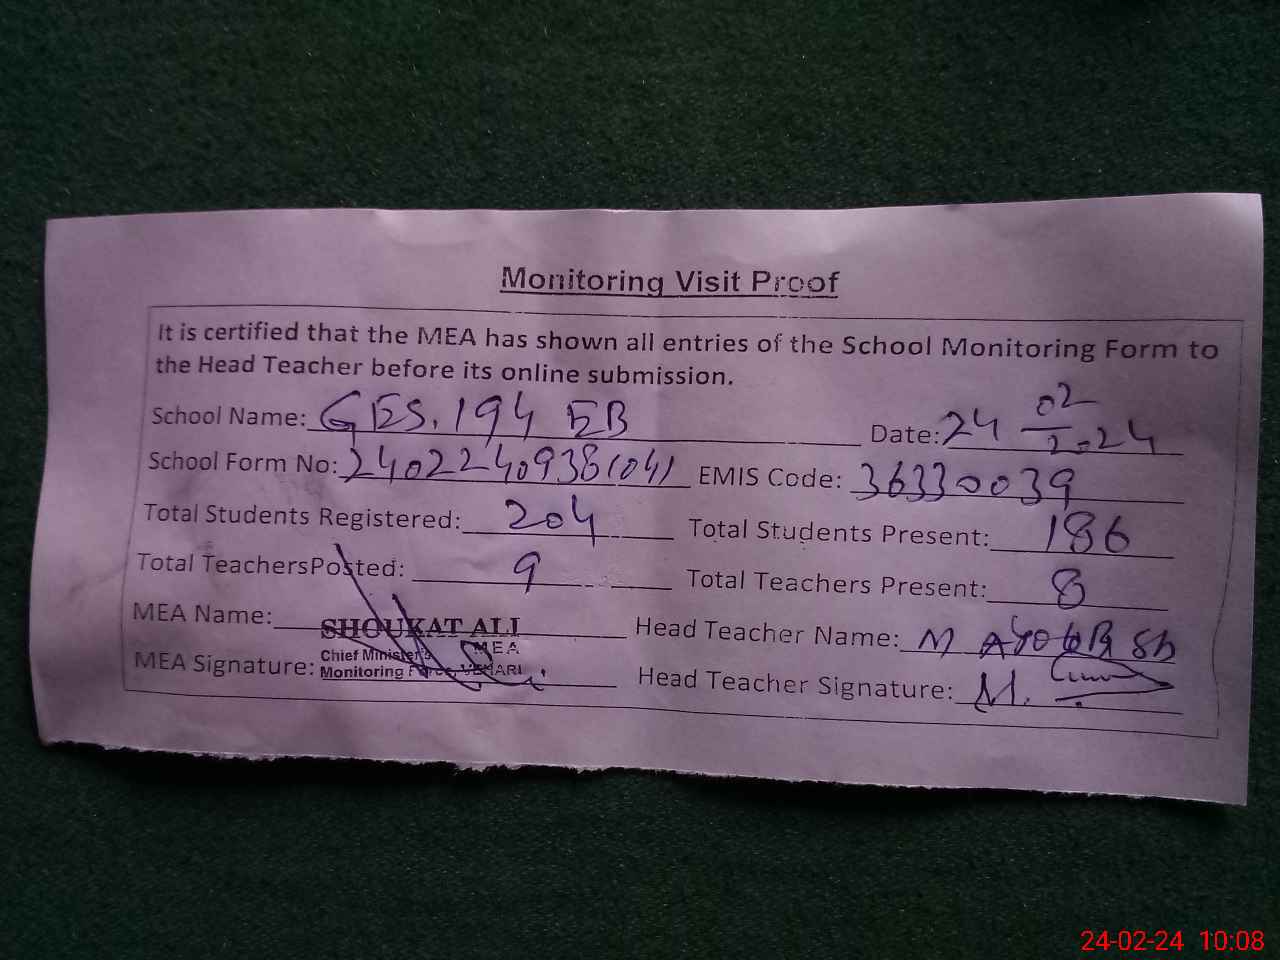 Monitoring Visit Proof
It is certified that the MEA has shown all entries of the School Monitoring Form to
the Head Teacher before its online submission.
School Name: GES. 194 EB Date: 24 02 2024
School Form No: EMIS Code: 36330039
Total Students Registered: 204 Total Students Present: 186
Total TeachersPosted: 9 Total Teachers Present: 8
MEA Name: SHOUKAT ALI Head Teacher Name: M
Chief Minister's MEA
MEA Signature: Monitoring Force VEHARI Head Teacher Signature: M.
24-02-24 10:08